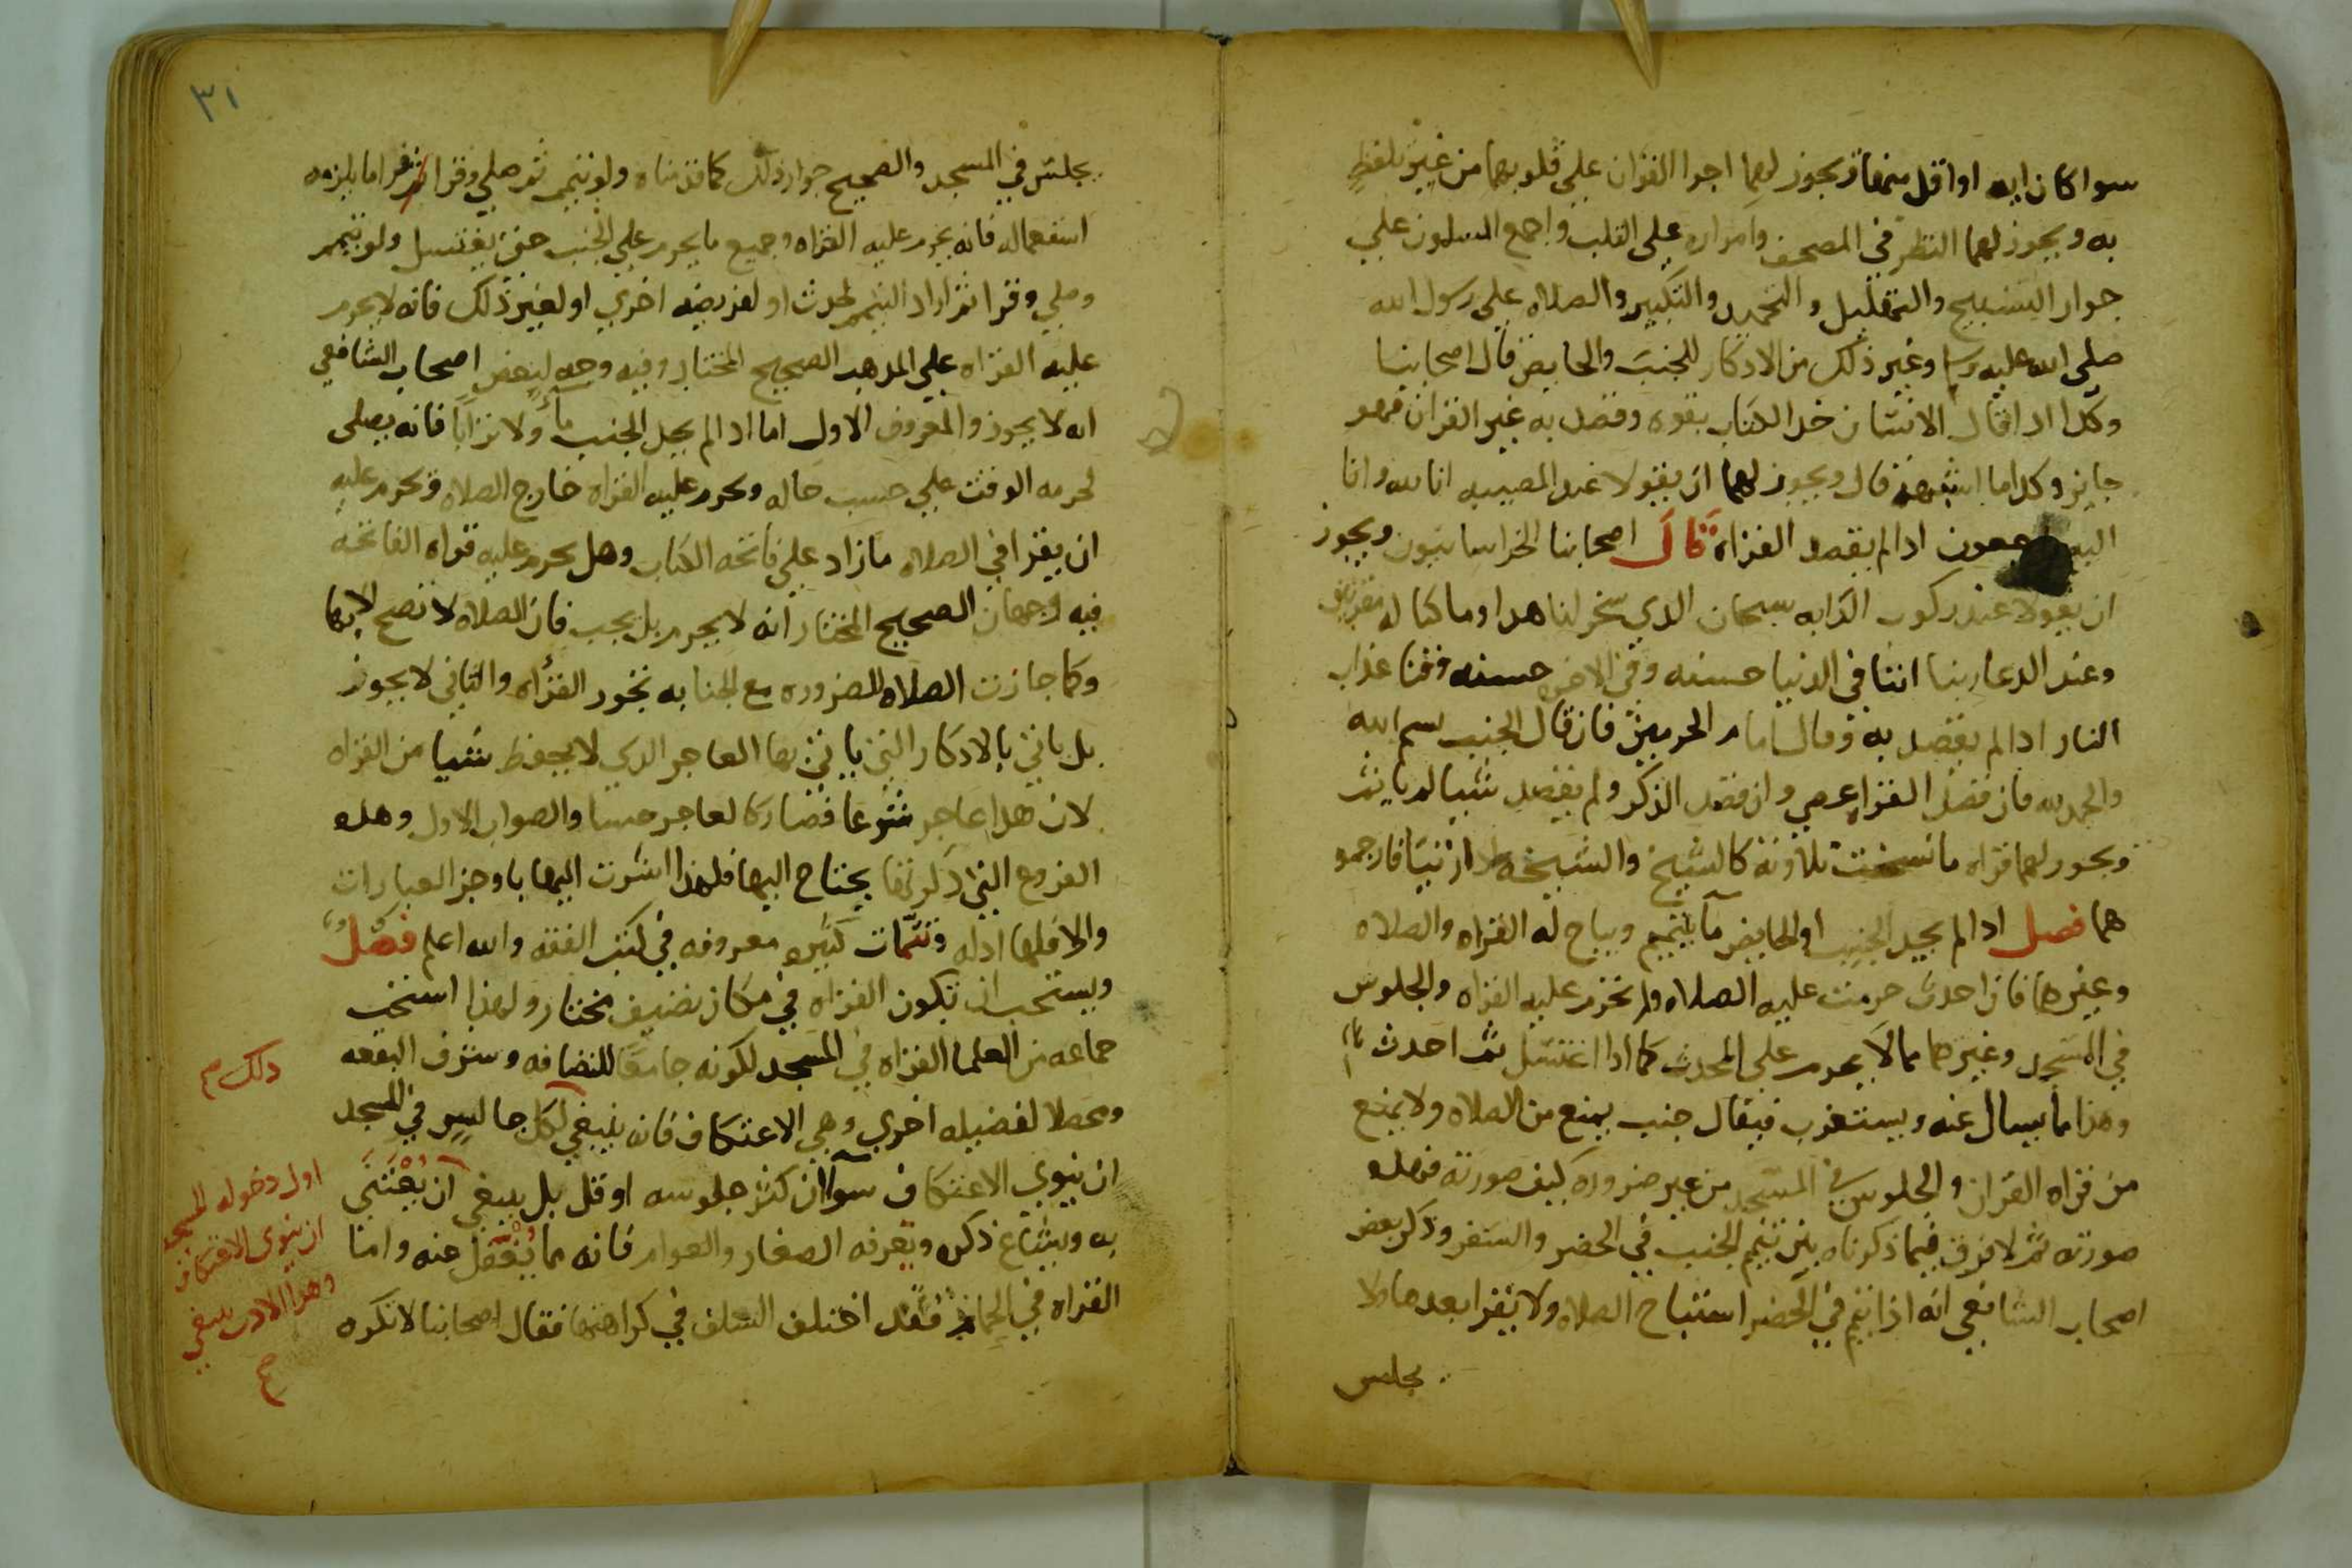 سوا كان ايه او اقل منها ويجوز لهما اجرا القران على قلوبهما من غير تلفظ
به ويجوز لهما النظر في المصحف وامراره على القلب واجمع المسلمون على
جواز التسبيح والتهليل والتحميد والتكبير والصلاه على رسول الله
صلى الله عليه وسلم وغير ذلك من الاذكار للجنب والحايض قال اصحابنا
وكدا ادا قال الانسان خد الكتاب بقوه وقصد به غير القران فهو
جايز وكدا ما اشبهه قال ويجوز لهما ان يقولا عند المصيبه انا لله وانا
اليه راجعون ادا لم يقصد القراه قال اصحابنا الخراسانيون ويجوز
ان يقولا عند ركوب الدابه سبحان الدي سخر لنا هدا وما كنا له مقرنين
وعند الدعا ربنا اتنا في الدنيا حسنه وفي الاخره حسنه وقنا عذاب
النار ادا لم يقصد به وقال امام الحرمين فان قال الجنب بسم الله
والحمد لله فان قصد القراه عصى وان قصد الذكر ولم يقصد شيا لم ياثم
ويجوز لهما قراه ما نسخت تلاوته كالشيخ والشيخه ادا زنيا فارجمو
هما فصل ادا لم يجد الجنب او الحايض مآ يتيمم ويباح له القراه والصلاه
وغيرها فان احدث حرمت عليه الصلاه ولم تحرم عليه القراه والجلوس
في المسجد وغيرهما مما لا يحرم على المحدث كما ادا اغتسل ثم احدث
وهذا ما يسال عنه ويستغرب فيقال جنب يمنع من الصلاه ولا يمنع
من قراه القران والجلوس في المسجد من غير ضروره كيف صورته فهده
صورته ثم لا فرق فيما ذكرناه بين تيمم الجنب في الحضر والسفر وذكر بعض
اصحاب الشافعي انه اذا تيمم في الحضر استباح الصلاه ولا يقرا بعدها ولا
يجلس
٣١
يجلس في المسجد والصحيح جواز ذلك كما قدمناه ولو تيمم ثم صلى وقرا ثم را ما يلزمه
استعماله فانه يحرم عليه القراه وجميع ما يحرم على الجنب حتى يغتسل ولو تيمم
وصلي وقرا ثم اراد التيمم لحدث او لفريضه اخري او لغير ذلك فانه لا يحرم
عليه القراه علي المدهب الصحيح المختار وفيه وجه لبعض اصحاب الشافعي
انه لا يجوز والمعروف الاول اما ادا لم يجد الجنب مآء ولا ترابا فانه يصلى
لحرمه الوقت علي حسب حاله ويحرم عليه القراه خارج الصلاه ويحرم عليه
ان يقرا في الصلاه ما زاد على فاتحه الكتاب وهل يحرم عليه قراه الفاتحه
فيه وجهان الصحيح المختار انه لا يحرم بل يجب فان الصلاه لا تصح الا بها
وكما جازت الصلاه للضروره مع الجنابه تجوز القراه والثاني لا يجوز
بل ياتي بالادكار التي ياتي بها العاجز الدي لا يحفظ شيا من القراه
لان هدا عاجز شرعا فصار كالعاجز حسا والصواب الاول وهده
الفروع التي ذكرتها يحتاج اليها فلهذا اشرت اليها باوجز العبارات
والا فلها ادله وتتمات كثيره معروفه في كتب الفقه والله اعلم فصل
ويستحب ان تكون القراه في مكان نضيف مختار ولهذا استحب
جماعه من العلما القراه في المسجد لكونه جامعا للنضافه وشرف البقعه
ومحصلا لفضيله اخري وهي الاعتكاف فانه ينبغي لكل جالس في المسجد
ان ينوي الاعتكاف سوآ ان كثر جلوسه او قل بل ينبغي ان يعتنى
به ويشاع ذكره ويعرفه الصغار والعوام فانه مما يغفل عنه واما
القراه في الحمام فقد اختلف السلف في كراهتها فقال اصحابنا لا تكره
دلك
اول دخوله المسجد
ان ينوي الاعتكاف
وهدا الادب ينبغي